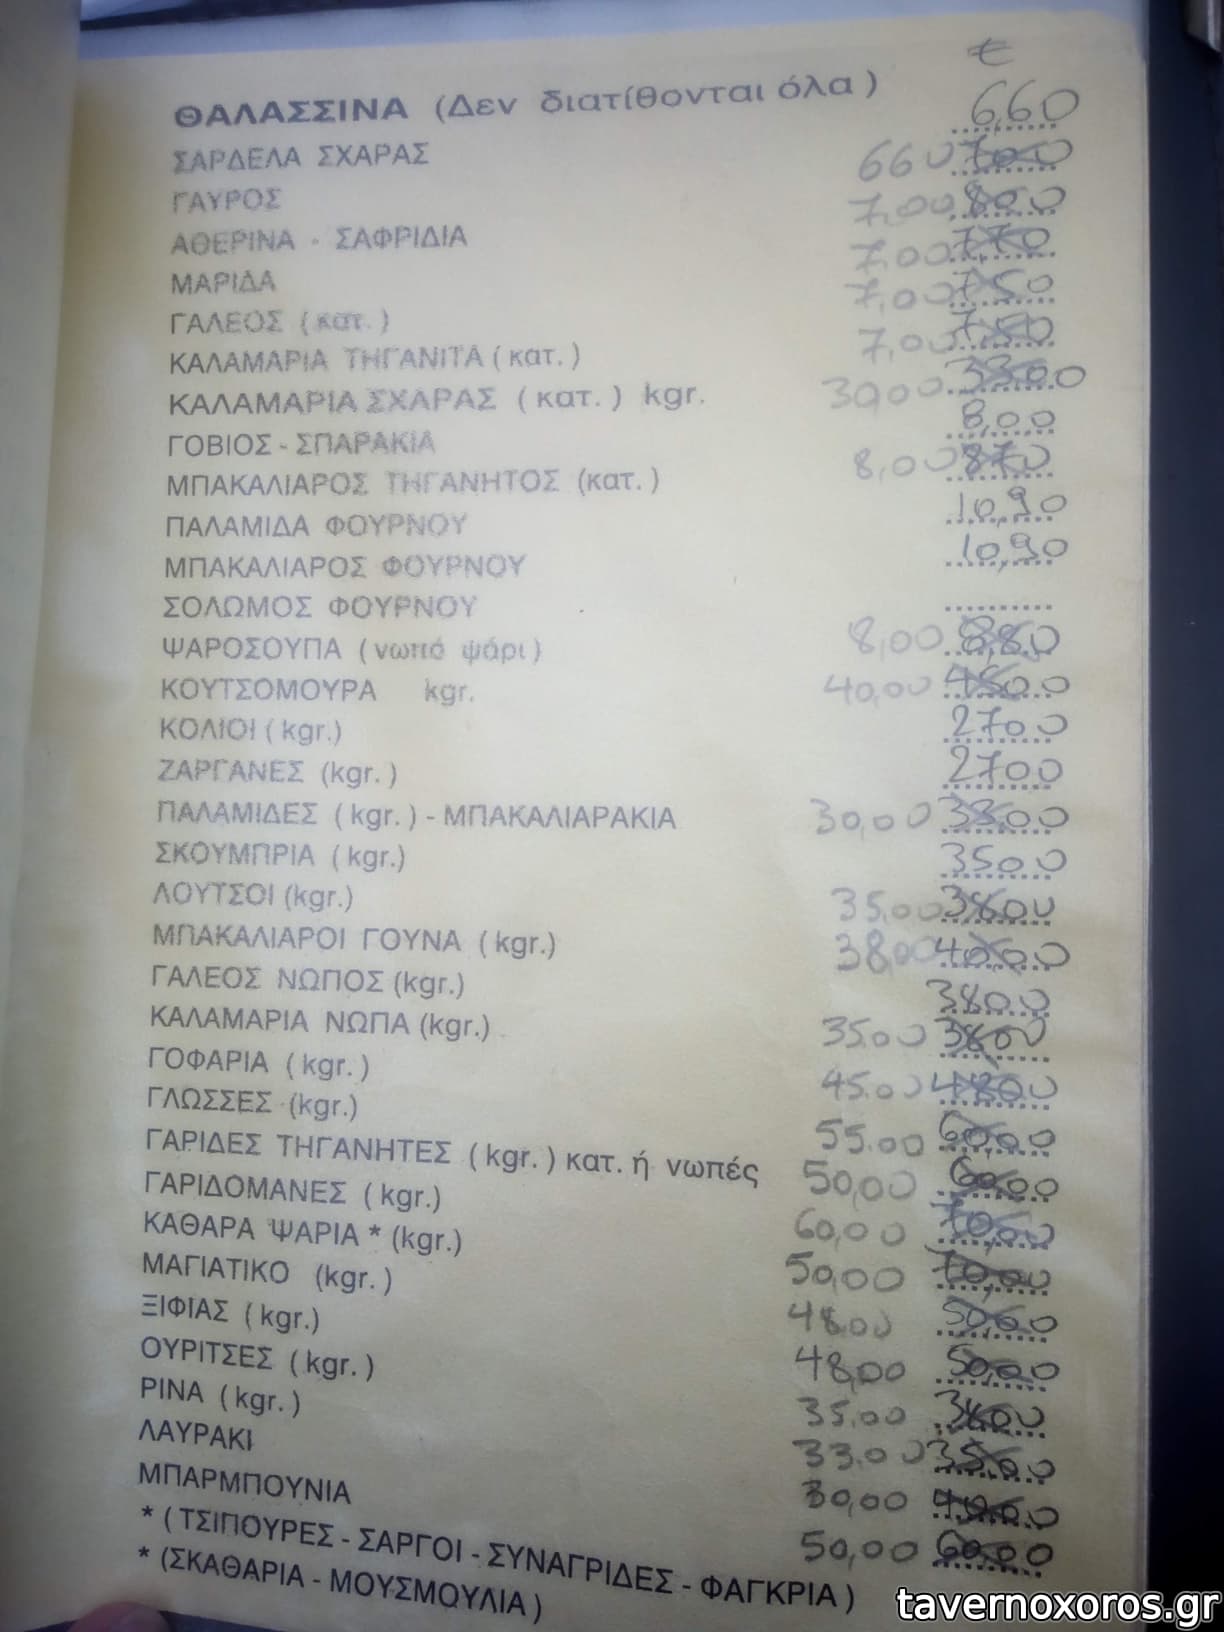 €
ΘΑΛΑΣΣΙΝΑ (Δεν διατίθονται όλα)
6,60
ΣΑΡΔΕΛΑ ΣΧΑΡΑΣ 6 60 700
ΓΑΥΡΟΣ 7,00 800
ΑΘΕΡΙΝΑ - ΣΑΦΡΙΔΙΑ 7,00 770
ΜΑΡΙΔΑ 7,00 750
ΓΑΛΕΟΣ (κατ.) 7,00 750
ΚΑΛΑΜΑΡΙΑ ΤΗΓΑΝΙΤΑ (κατ.) 30,00 3300
ΚΑΛΑΜΑΡΙΑ ΣΧΑΡΑΣ (κατ.) kgr. 8,00
ΓΟΒΙΟΣ - ΣΠΑΡΑΚΙΑ 8,00 870
ΜΠΑΚΑΛΙΑΡΟΣ ΤΗΓΑΝΗΤΟΣ (κατ.) 10,90
ΠΑΛΑΜΙΔΑ ΦΟΥΡΝΟΥ 10,90
ΜΠΑΚΑΛΙΑΡΟΣ ΦΟΥΡΝΟΥ
ΣΟΛΩΜΟΣ ΦΟΥΡΝΟΥ 8,00 8,80
ΨΑΡΟΣΟΥΠΑ (νωπό ψάρι) 40,00 4500
ΚΟΥΤΣΟΜΟΥΡΑ kgr. 2700
ΚΟΛΙΟΙ (kgr.) 2700
ΖΑΡΓΑΝΕΣ (kgr.) 30,00 3300
ΠΑΛΑΜΙΔΕΣ (kgr.) - ΜΠΑΚΑΛΙΑΡΑΚΙΑ 3500
ΣΚΟΥΜΠΡΙΑ (kgr.) 35.00 3800
ΛΟΥΤΣΟΙ (kgr.) 38,00 4000
ΜΠΑΚΑΛΙΑΡΟΙ ΓΟΥΝΑ (kgr.) 3800
ΓΑΛΕΟΣ ΝΩΠΟΣ (kgr.) 35.00 3800
ΚΑΛΑΜΑΡΙΑ ΝΩΠΑ (kgr.) 45.00 4800
ΓΟΦΑΡΙΑ (kgr.) 55.00 60,00
ΓΛΩΣΣΕΣ (kgr.) 50,00 6000
ΓΑΡΙΔΕΣ ΤΗΓΑΝΗΤΕΣ (kgr.) κατ. ή νωπές 60,00 70,00
ΓΑΡΙΔΟΜΑΝΕΣ (kgr.) 50,00 70,00
ΚΑΘΑΡΑ ΨΑΡΙΑ * (kgr.) 48.00
ΜΑΓΙΑΤΙΚΟ (kgr.) 48,00 50,00
ΞΙΦΙΑΣ (kgr.) 35.00 3800
ΟΥΡΙΤΣΕΣ (kgr.) 33.00 3500
ΡΙΝΑ (kgr.) 30,00
ΛΑΥΡΑΚΙ 50,00 60,00
ΜΠΑΡΜΠΟΥΝΙΑ
* (ΤΣΙΠΟΥΡΕΣ - ΣΑΡΓΟΙ - ΣΥΝΑΓΡΙΔΕΣ - ΦΑΓΚΡΙΑ)
* (ΣΚΑΘΑΡΙΑ - ΜΟΥΣΜΟΥΛΙΑ)
tavernoxoros.gr